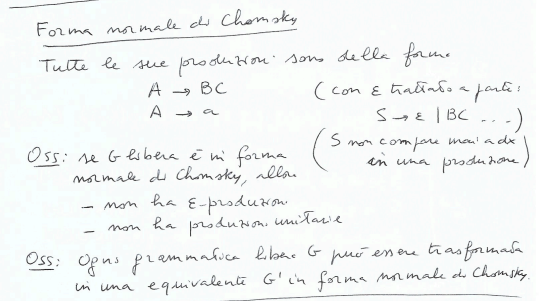 Forma normale di Chomsky
Tutte le sue produzioni sono della forma
A → BC (con ε trattato a parte:
A → a S → ε | BC ...)
Oss: se G libera è in forma (S non compare mai a dx
normale di Chomsky, allora in una produzione)
- non ha ε-produzioni
- non ha produzioni unitarie
Oss: Ogni grammatica libera G può essere trasformata
in una equivalente G' in forma normale di Chomsky.